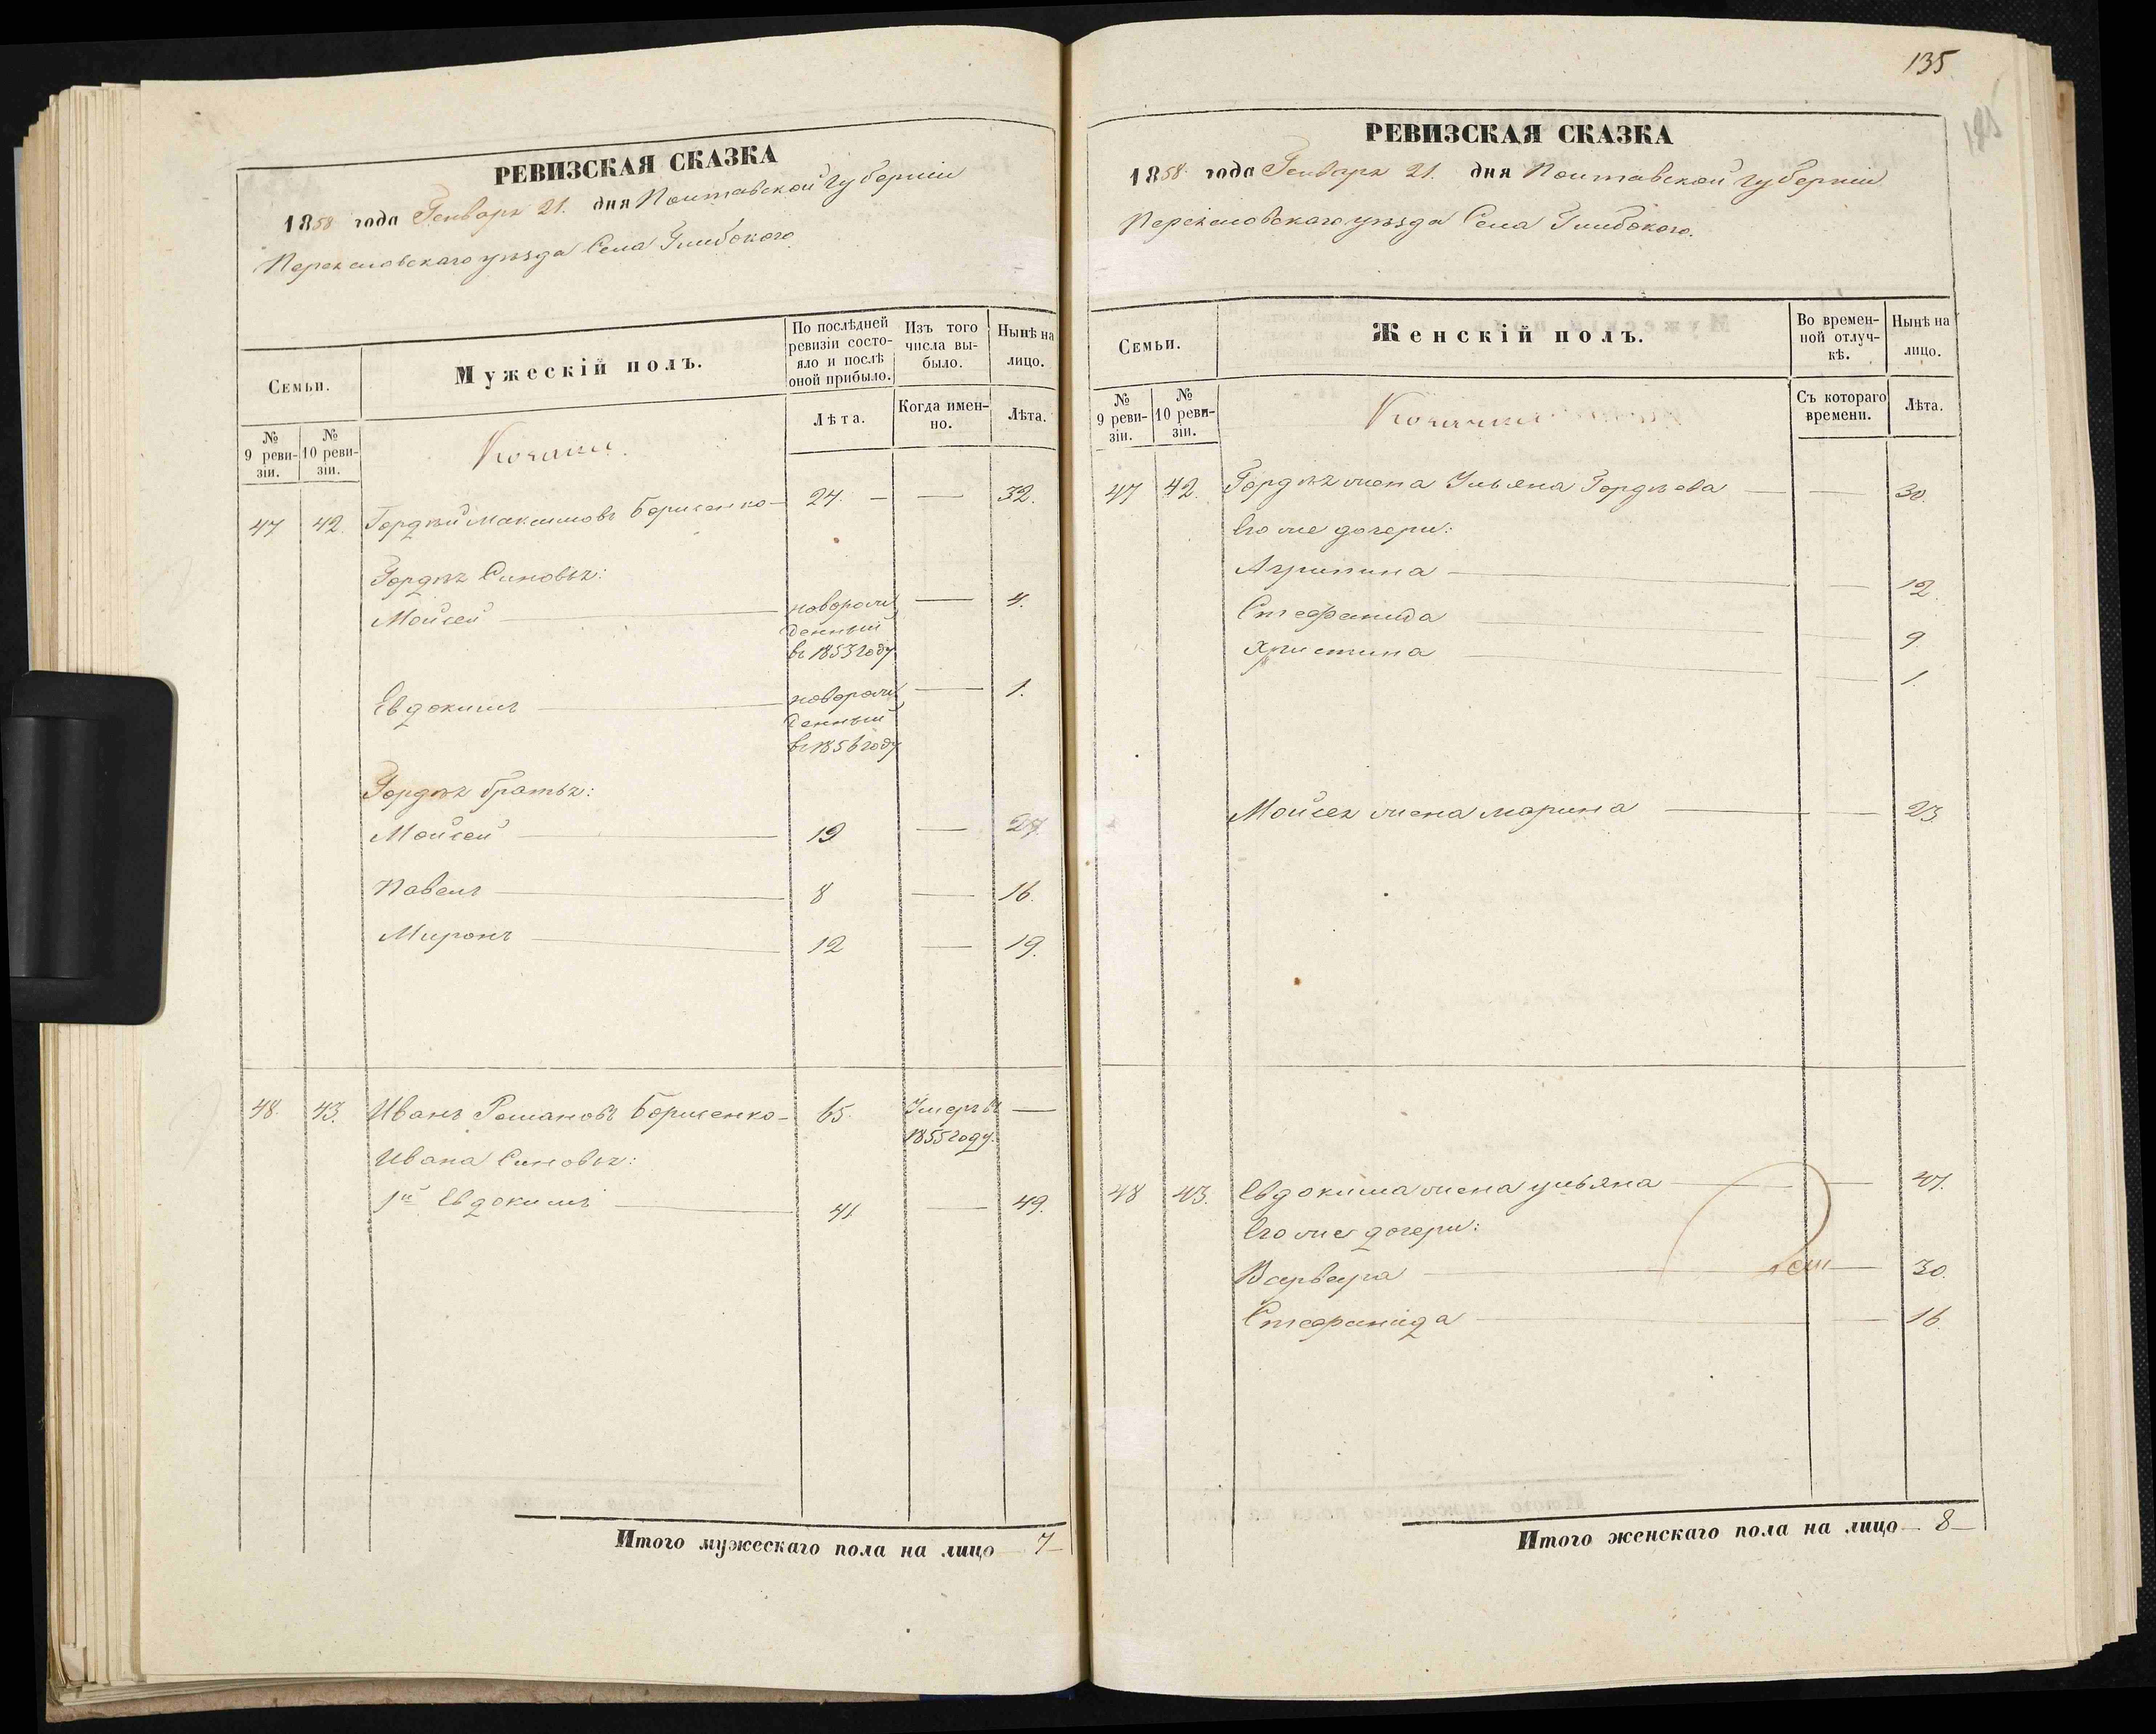 135
РЕВИЗСКАЯ СКАЗКА
1858 года Генваря 21. дня Полтавской губерніи
Переяславскаго уѣзда Села Глибокого.
Семьи.
Мужескій полъ.
По послѣдней ревизіи состояло и послѣ оной прибыло.
Изъ того числа выбыло.
Нынѣ на лицо.
№ 9 ревизіи.
№ 10 ревизіи.
Козаки.
Лѣта.
Когда именно.
Лѣта.
47 42. Гордѣй Максимовъ Борисенко 24. — — 32.
Гордѣя Синовья:
Мойсей — новорож
денный
въ 1853 году — 4.
Евдокимъ — новорож
денный
въ 1856 году — 1.
Гордѣя братья:
Мойсей — 19 — 27.
Павелъ — 8 — 16.
Миронъ — 12 — 19.
48. 43. Иванъ Романовъ Борисенко — 65. Умеръ въ —
1855 году.
Ивана Синовья:
1й Евдокимъ — 41 — 49.
Итого мужескаго пола на лицо 7—
РЕВИЗСКАЯ СКАЗКА
1858 года Генваря 21. дня Полтавской губерніи
Переяславскаго уѣзда Села Глибокого.
Семьи.
Женскій полъ.
Во временной отлучкѣ.
Нынѣ на лицо.
№ 9 ревизіи.
№ 10 ревизіи.
Козачки
Съ котораго времени.
Лѣта.
47 42. Гордѣя жена Ульяна Гордѣева — — 30.
Его же дочери:
Агрипина — — 12.
Стефанида — — 9
Христина — — 1.
Мойсея жена Марина — — 23.
48 43. Евдокима жена Ульяна — — 47.
Его же дочери:
Варвара — — 30.
Стефанида — — 16.
Итого женскаго пола на лицо — 8—